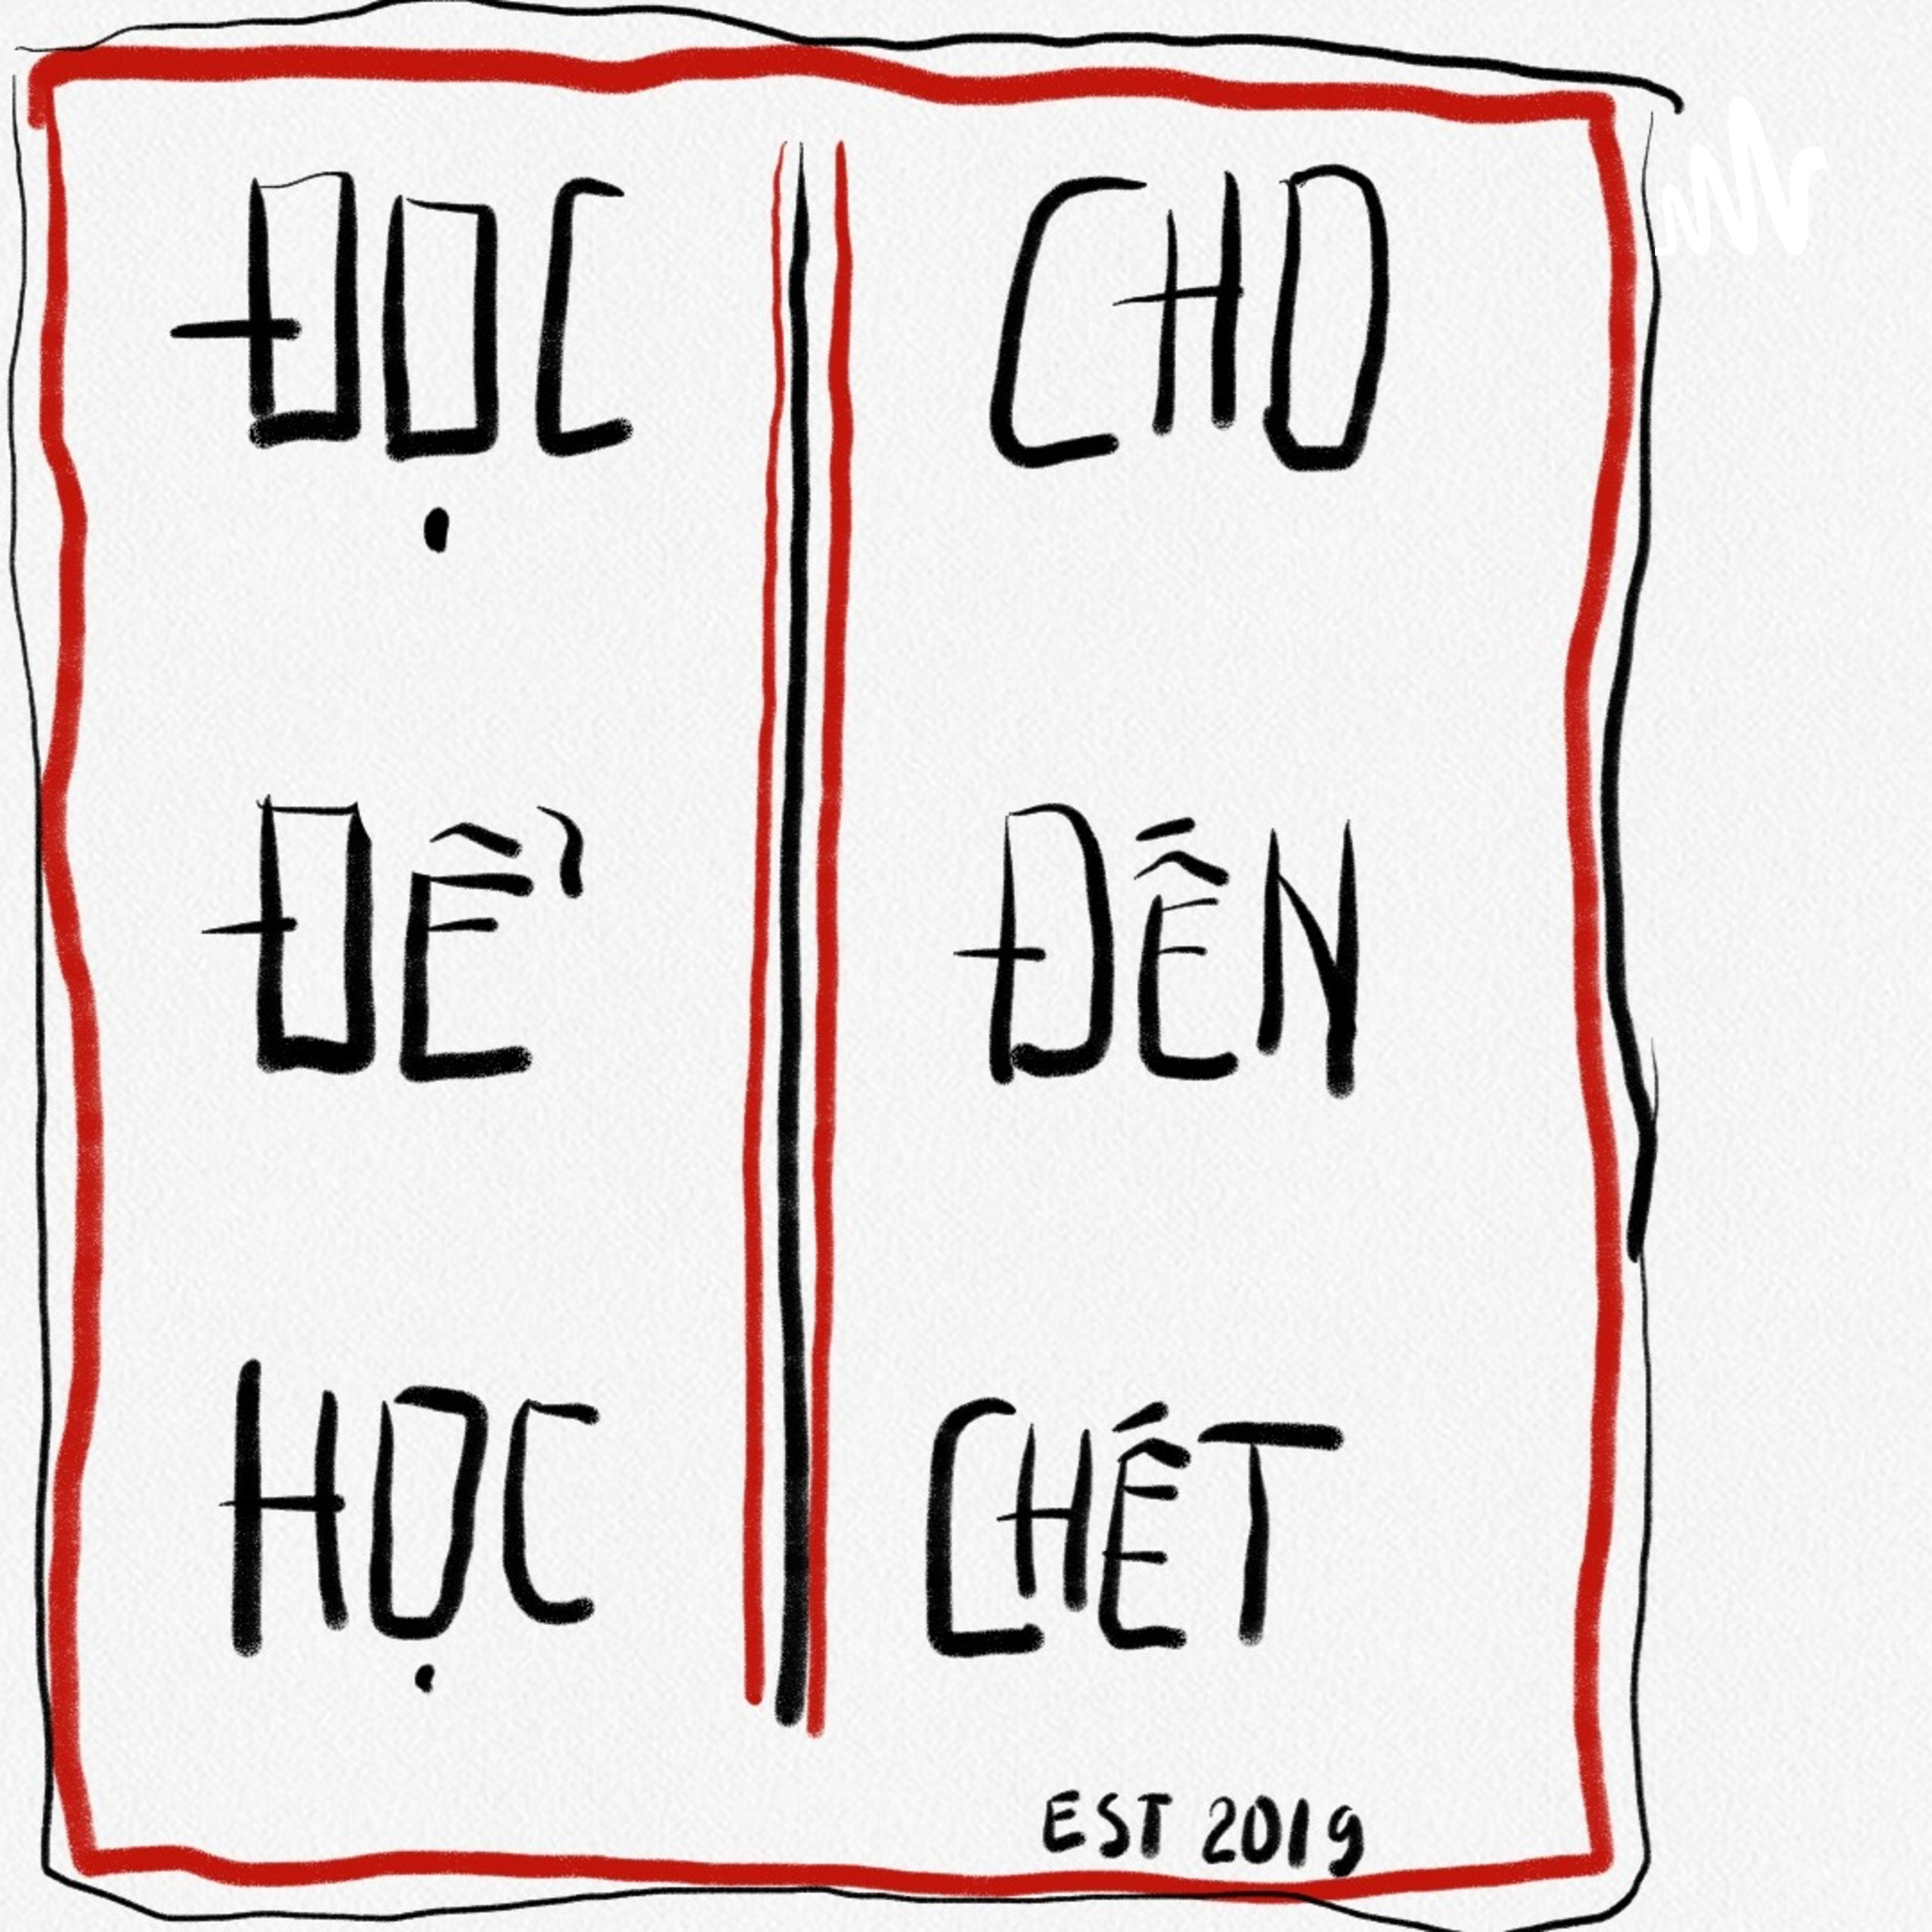 ĐỌC
ĐỂ
HỌC
CHO
ĐẾN
CHẾT
EST 2019